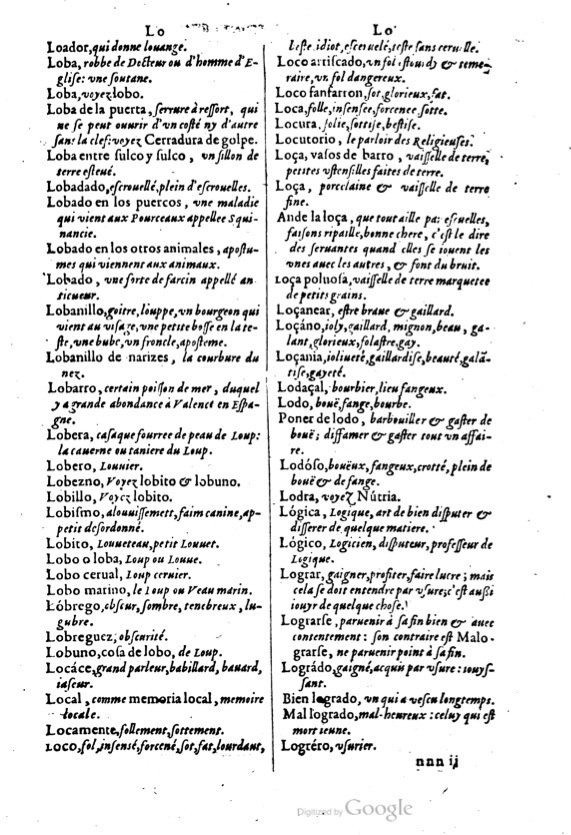 Lo
Loador, qui donne louange.
Loba, robbe de Docteur ou d'homme d'E-
glise: vne soutane.
Loba, voyez lobo.
Loba de la puerta, serrure à ressort, qui
ne se peut ouurir d'vn costé ny d'autre
sans la clef: voyez Cerradura de golpe.
Loba entre sulco y sulco, vn sillon de
terre esleué.
Lobadado, escrouellé, plein d'escrouelles.
Lobado en los puercos, vne maladie
qui vient aux Pourceaux appellee Squi-
nancie.
Lobado en los otros animales, apostu-
mes qui viennent aux animaux.
Lobado, vne sorte de farcin appellé an
ticueur.
Lobanillo, goitre, louppe, vn bourgeon qui
vient au visage, vne petite bosse en la te-
ste, vne bube, vn froncle, aposteme.
Lobanillo de narizes, la courbure du
nez.
Lobarro, certain poisson de mer, duquel
y a grande abondance à Valence en Espa-
gne.
Lobera, casaque fourree de peau de Loup:
la cauerne ou taniere du Loup.
Lobero, Louuier.
Lobezno, Voyez lobito & lobuno.
Lobillo, Voyez lobito.
Lobismo, alouuissemett, faim canine, ap-
petit desordonné.
Lobito, Louueteau, petit Louuet.
Lobo o loba, Loup ou Louue.
Lobo cerual, Loup ceruier.
Lobo marino, le Loup ou Veau marin.
Lóbrego, obscur, sombre, tenebreux, lu-
gubre.
Lobreguez, obscurité.
Lobuno, cosa de lobo, de Loup.
Locáce, grand parleur, babillard, bauard,
iaseur.
Local, comme memoria local, memoire
locale.
Locamente, follement, sottement.
Loco, fol, insensé, forcené, sot, fat, lourdaut,
Lo
teste idiot, esceruelé, teste sans ceruelle.
Loco arriscado, vn fol estourdy & teme-
raire, vn fol dangereux.
Loco fanfarron, sot, glorieux, fat.
Loca, folle, insensee, forcenee, sotte.
Locura, folie, sottise, bestise.
Locutorio, le parloir des Religieuses.
Loça, vasos de barro, vaisselle de terre,
petites vstensilles faites de terre.
Loça, porcelaine & vaisselle de terre
fine.
Ande la loça, que tout aille par escuelles,
faisons ripaille, bonne chere, c'est le dire
des seruantes quand elles se iouent les
vnes auec les autres, & font du bruit.
Loça poluosa, vaisselle de terre marquetee
de petits grains.
Loçanear, estre braue & gaillard.
Loçáno, ioly, gaillard, mignon, beau, ga-
lant, glorieux, folastre, gay.
Loçania, ioliueté, gaillardise, beauté, galã-
tise, gayeté.
Lodaçal, bourbier, lieu fangeux.
Lodo, bouë, fange, bourbe.
Poner de lodo, barbouiller & gaster de
bouë; diffamer & gaster tout vn affai-
re.
Lodóso, boueux, fangeux, crotté, plein de
bouë & de fange.
Lodra, voyez Nútria.
Lógica, Logique, art de bien disputer &
differer de quelque matiere.
Lógico, Logicien, disputeur, professeur de
Logique.
Lograr, gaigner, profiter, faire lucre; mais
cela se doit entendre par vsure; c'est aussi
iouyr de quelque chose.
Lograrse, paruenir à sa fin bien & auec
contentement: son contraire est Malo-
grarse, ne paruenir point à sa fin.
Lográdo, gaigné, acquis par vsure: iouys-
sant.
Bien logrado, vn qui a vescu longtemps.
Mal logrado, mal-heureux: celuy qui est
mort ieune.
Logréro, vsurier.
nnn ij
Digitized by Google